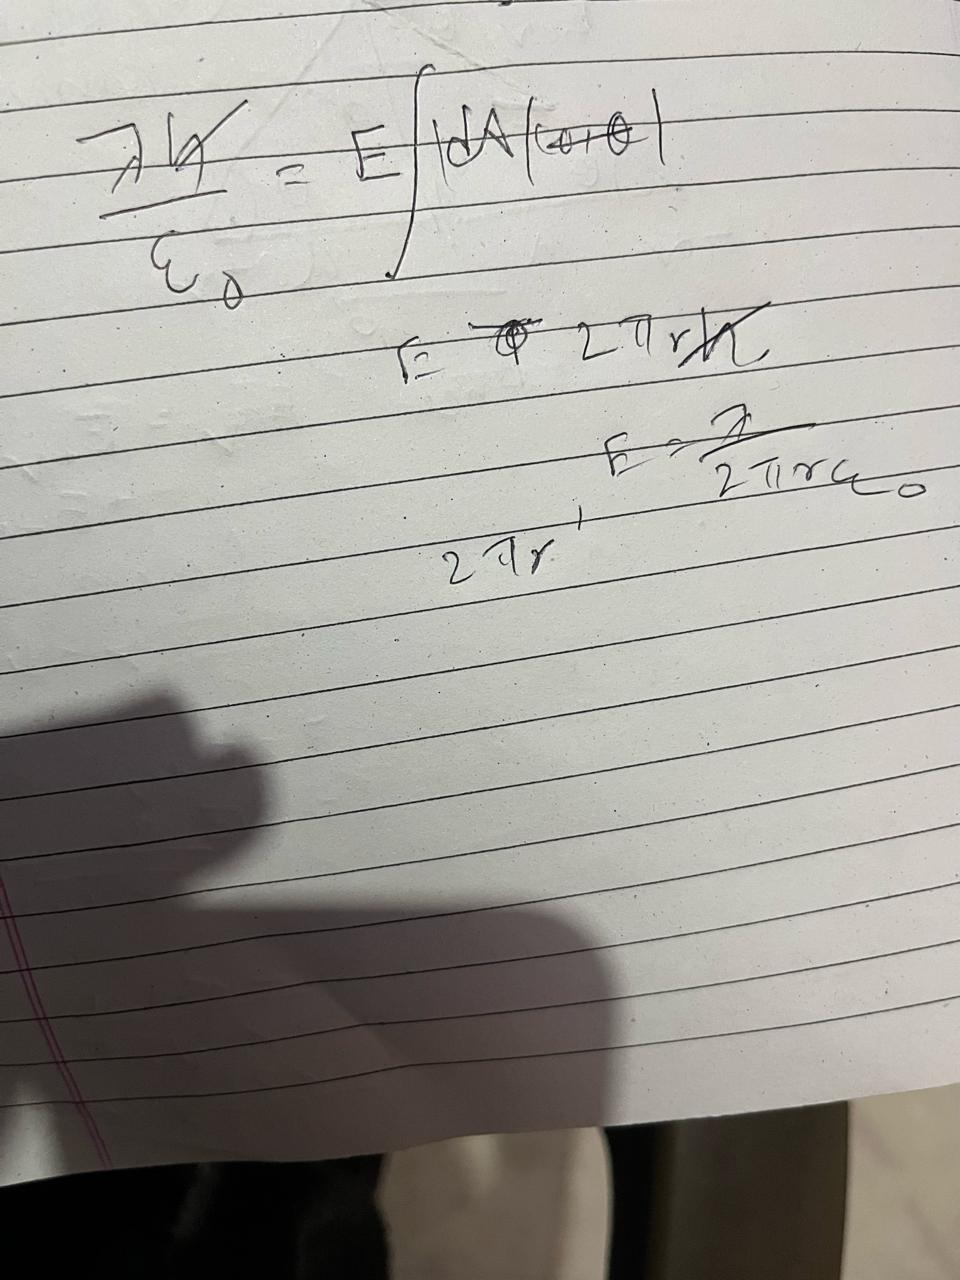 λh/ε₀ = E ∫ |dA| cos θ|
E = 2πrh
E = λ/2πrε₀
2πr